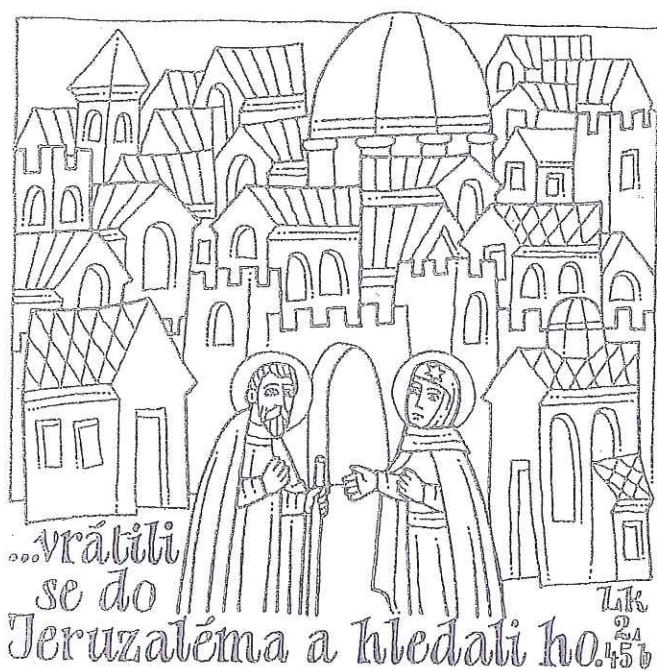 ...vrátili
se do
Jeruzaléma a hledali ho.
Lk
2,
45b